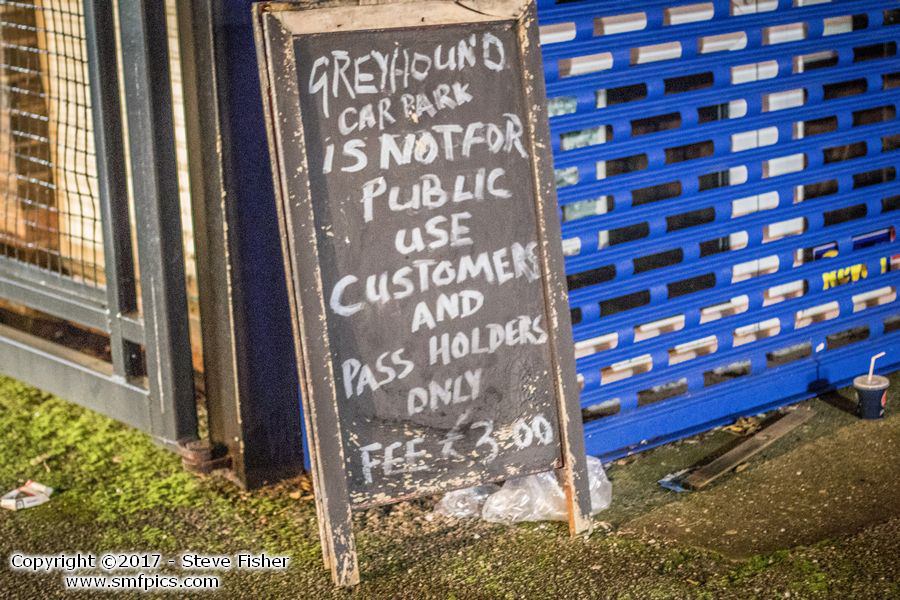 GREYHOUND
CAR PARK
IS NOT FOR
PUBLIC
USE
CUSTOMERS
AND
PASS HOLDERS
ONLY
FEE £3.00
Copyright ©2017 - Steve Fisher
www.smfpics.com